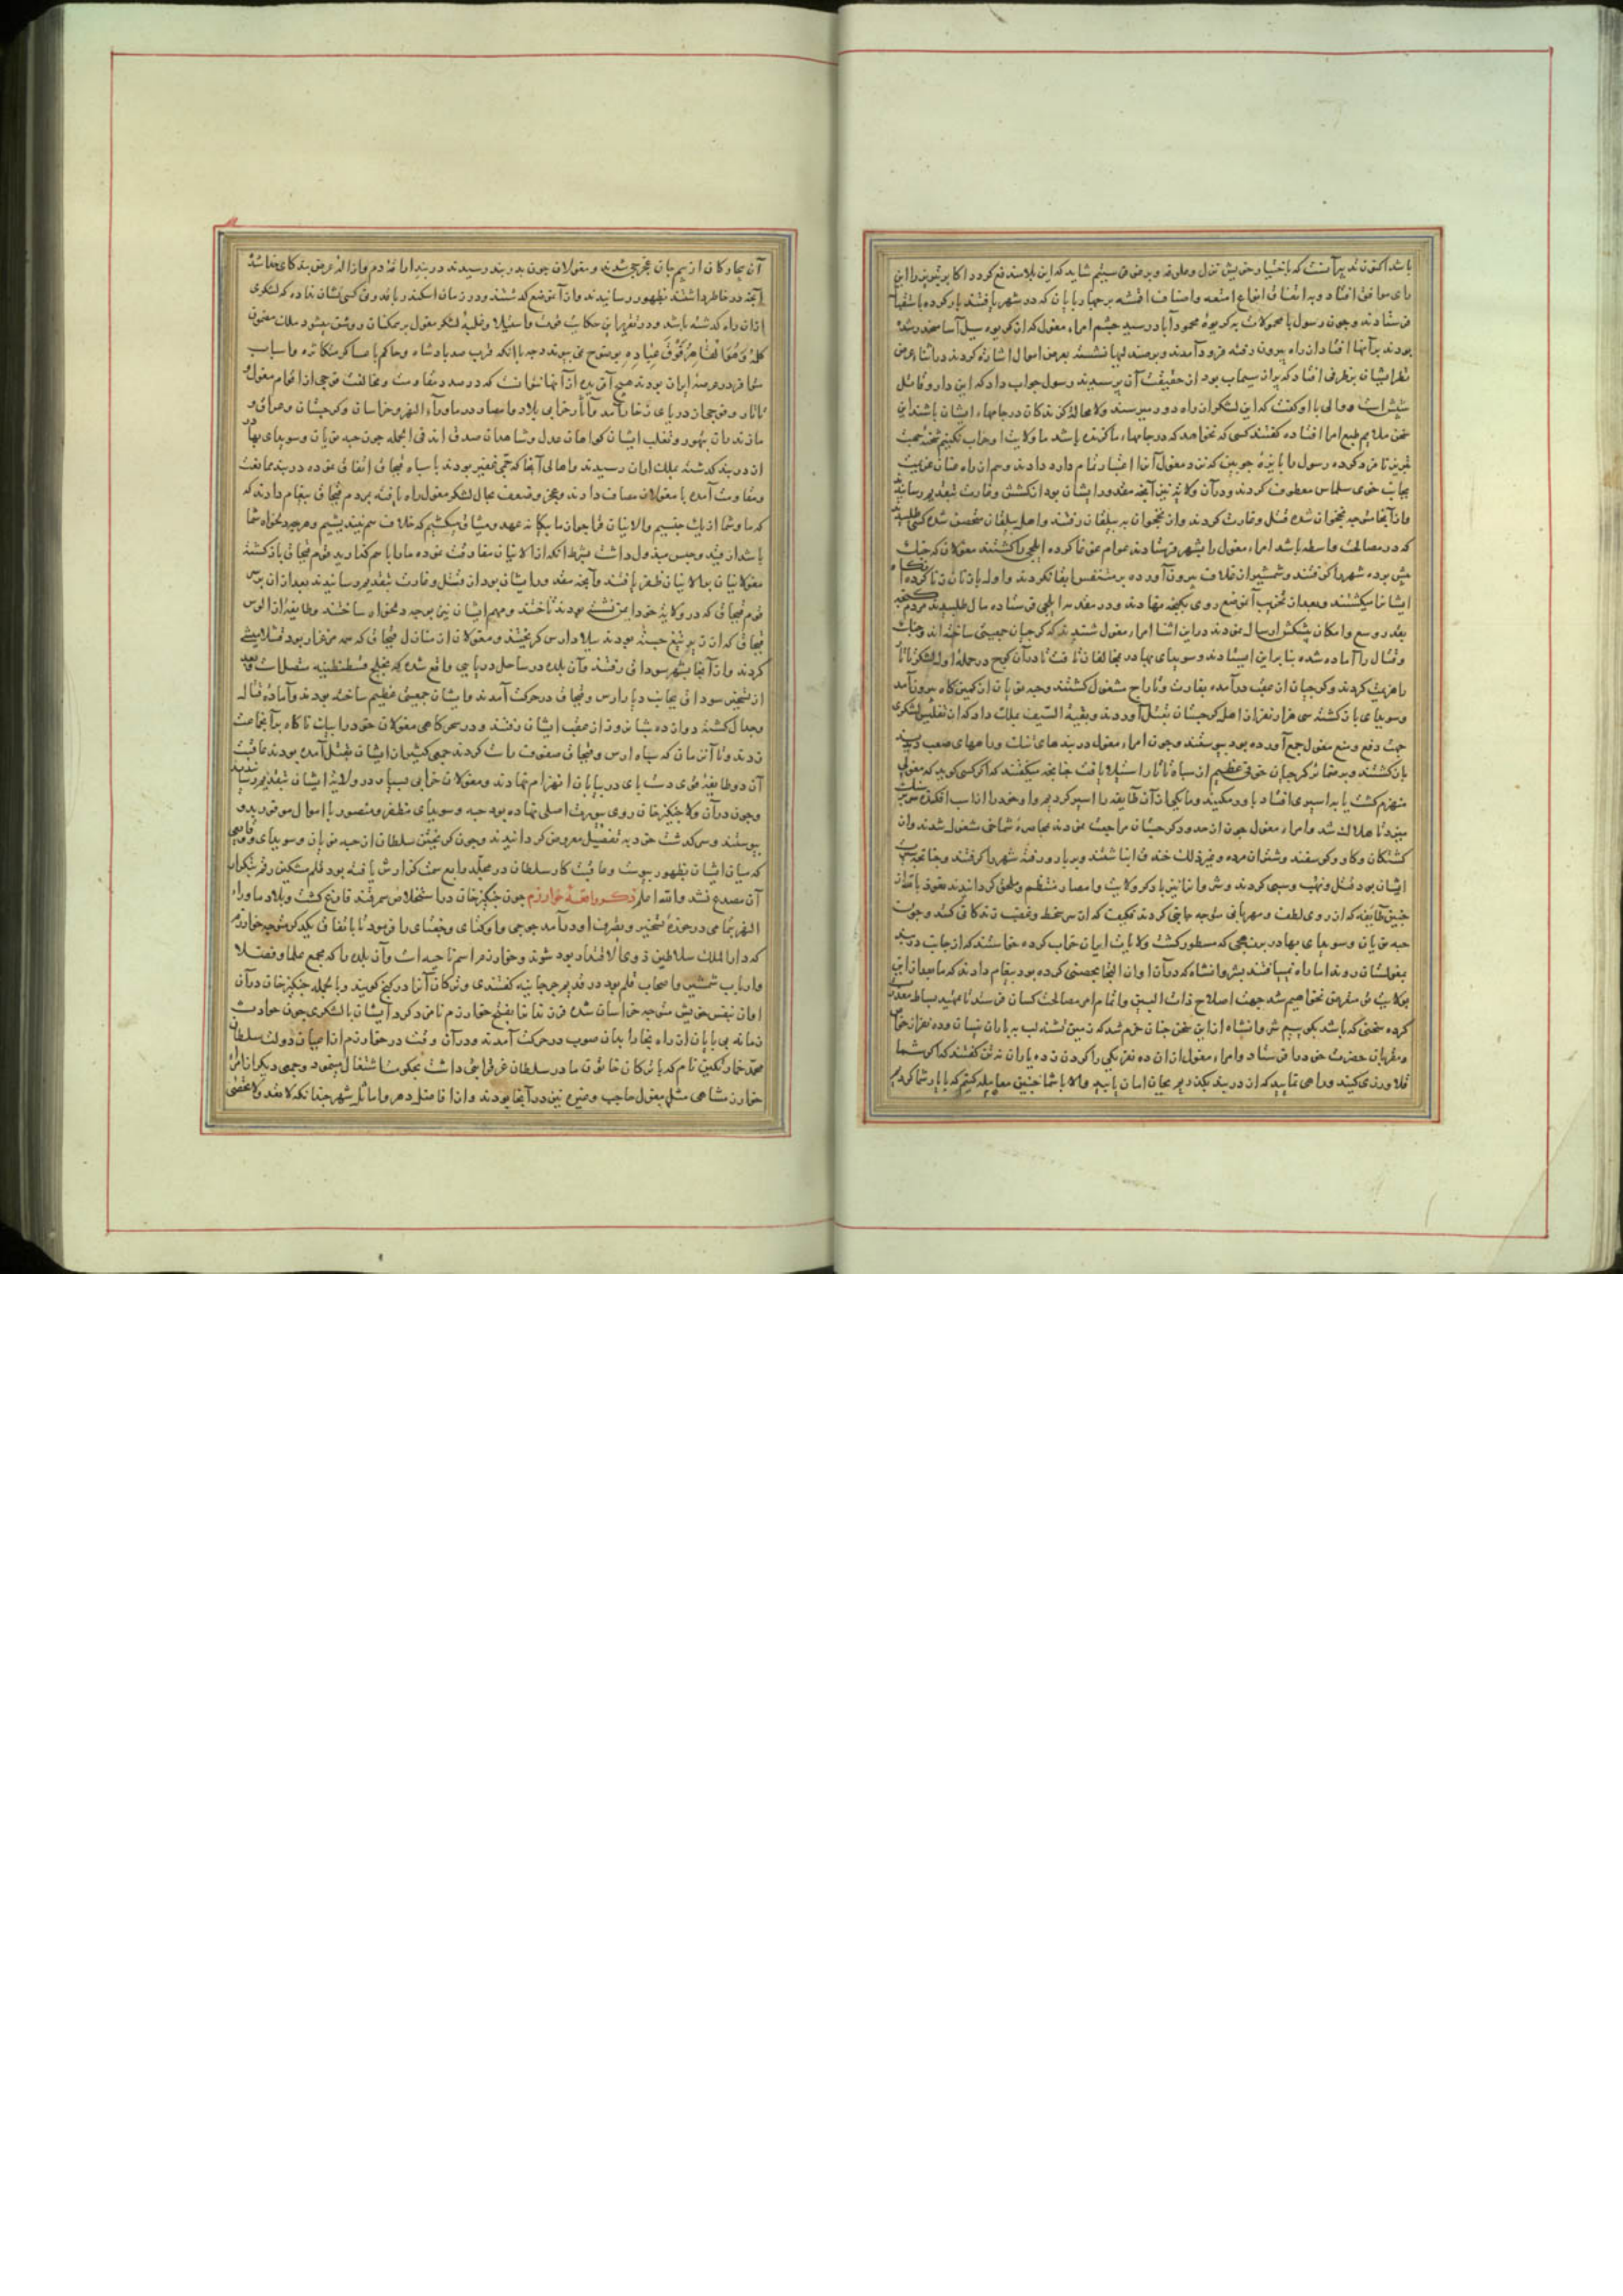 باشد اکنون تدبیر آنست که باختیار خویش نزل و علوفه و پیشکش فرستیم شاید که این بلا مندفع گردد اکابر شروان را این
رای موافق افتاد و به اتفاق انواع امتعه و اصناف اقمشه بر چهارپایان که در شهر یافتند بار کرده
فرستادند و چون رسول با محمولات به کریوه محمودآباد رسید چشم امراء مغول که از کریوه سیل آسا منحدر شده
بودند بر آنها افتاد از راه بیرون رفته فرود آمدند و بر مسند نشسته بعرض اموال اشارت کردند در اثناء عرض
نظر ایشان بر ظرفی افتاد که پر از سیماب بود از حقیقت آن پرسیدند رسول جواب داد که این داروی قاتل
شپش است و والی با او گفت که این لشکر از راه دور میرسند و لا محاله گزندگان در جامهاء ایشان باشند این
سخن ملایم طبع امرا افتاده گفتند کسی که نخواهد که در جامهاء ما گزنده باشد ما ولایت او خراب نکنیم شحنه جهت
تبریز نامزد کرده رسول را پایزه چوبین که نزد مغول آنرا اعتبار تمام دارد دادند و هم از راه عنان عزیمت
بجانب خوی سلماس معطوف کردند و در آن ولایت نیز آنچه مقدور ایشان بود از کشش و غارت بتقدیم رسانیدند
و از آنجا متوجه نخجوان شده قتل و غارت کردند و از نخجوان به بیلقان رفتند و اهل بیلقان متحصن شده کسی طلبیدند
که در مصالحت واسطه باشد امراء مغول را بشهر فرستادند عوام غوغا کرده ایلچی را کشتند مغولان که جنگ
پیش برده شهر را گرفتند و شمشیر از غلاف بیرون آورده بر متنفسی ابقا نکردند و اول با زنان زنا کرده
ایشانرا میکشتند و بعد از تخریب آن موضع روی بگنجه نهادند و در مقدمه ایلچی فرستاده مال طلبیدند مردم گنجه
بقدر وسع و امکان پیشکش ارسال نمودند در این اثنا امراء مغول شنیدند که گرجیان جمعیتی ساخته اند و جنگ
و قتال را آماده شده بنابراین ایستادند و سوبدای بهادر بمخالفان تاخت تا در آن کوچ در حمله اول لشکر تاتار
را هزیمت کردند و گرجیان از عقب درآمده بغارت و تاراج مشغول گشتند و جبه نویان از کمین گاه بیرون آمد
و سوبدای بازگشته سی هزار نفر از اهل گرجستان بقتل آوردند و بقیة السیف بملک داد که از تفلیس لشکری
جهت دفع و منع مغول جمع آورده بود پیوستند و چون امراء مغول دربندهای تنگ و راههای صعب دیدند
بازگشتند و بر ضمائر گرجیان خوفی عظیم از سپاه تاتار استیلا یافت چنانچه میگفتند که اگر کسی گوید که مغولی
منهزم گشت یا به اسیری افتاد باور مکنید و ما یکی از آن طایفه را اسیر کردیم او خود را از اسب افکنده سر بر سنگ
میزد تا هلاک شد و امراء مغول چون از حدود گرجستان مراجعت نمودند بمحاصره شماخی مشغول شدند و از
کشتگان و گاو و گوسفند و شتران مرده و غیر ذلک خندق انباشتند و بر بارو رفته شهر را گرفتند و چنانچه رسم
ایشان بود قتل و نهب و سبی کردند و شروانرا نیز با دیگر ولایت و امصار منتظم و ملحق گردانیدند نعوذ بالله از
چنین طایفه که از روی لطف و مهربانی متوجه جایی گردند فکیف که از سر سخط و غضب زندگانی کنند و چون
جبه نویان و سوبدای بهادر بر نهجی که مسطور گشت ولایات ایران خراب کرده خواستند که از جانب دربند
بمغولستان روند اما راه نمییافتند بشروانشاه که در آن اوان التجا بحصنی کرده بود پیغام دادند که ما بعد از این
بولایت تو متعرض نخواهیم شد جهت اصلاح ذات البین و اتمام امر مصالحت کسان فرستد تا تمهید بساط معاهده
کرده سخنی که باشد بگوییم شروانشاه از این سخن چنان خرم شد که زمین تشنه لب به باران نیسان و ده نفر از خواص
و مقربان حضرت خود را فرستاد و امراء مغول از آن ده نفر یکی را گردن زده باران نه تن گفتند که اگر شما
قلاوزی کنید و راهی نمایید که از دربند بگذریم بجان امان یابید و الا با شما همین معامله کنیم که با یار شما کردیم
آن بیچارگان از بیم جان عجزی شدند و مغولان چون بدربند رسیدند دربند را
آنچه در خاطر داشتند بظهور رسانیدند و از آن موضع گذشتند و در زمان اسکندر یا قدری کسی نشان نداده که لشکری
از آن راه گذشته باشد و در تقریر این حکایت قوت و استیلا و غلبه لشکر مغول بر ممکنان روشن میشود ملک معنون
کلمه وَهُوَ الْقَاهِرُ فَوْقَ عِبَادِهِ بوضوح می پیوندد چه با آنکه قریب صد پادشاه و حاکم با عساکر متکاثره و اسباب
متوافره در عرصه ایران بودند هیچ آفریده از آنها نتوانست که در صدد مقاومت و مخالفت فوجی از اقوام مغول
تاتار و موجی از دریای زخار آمد مآثار خرابی بلاد و امصار در ماوراء النهر و خراسان و گرجستان و عراق و
مازندران بتهور و تغلب ایشان گواهان عدل و شاهدان صدق اند فی الجمله چون جبه نویان و سوبدای بهادر
از دربند گذشته بملک اران رسیدند و اهالی آنجا که جمعی غفیر بودند با سپاه قبچاق اتفاق نموده در بند ممانعت
و مقاومت آمده با مغولان مصاف دادند و عجز و ضعف بحال لشکر مغول راه یافته بمردم قبچاق پیغام دادند که
که ما و شما از یک جنسیم و الانیان قوا جوان ما بیگانه عهد و میثاق میکنیم که خلاف هم نیندیشیم و هرچه دلخواه شما
باشد از نقد و جنس مبذول داشت بشرط آنکه از الانیان مفارقت نموده ما را با هم گذارید قوم قبچاق بازگشته
مغولانیان بر الانیان ظفر یافتند و آنچه مقدور ایشان بود از قتل و غارت بتقدیم رسانیدند بعد از آن بر سر
قوم قبچاق که در ولایت خود ایمن نشسته بودند تاختند و مهم ایشان نیز بر وجه دلخواه ساختند و طایفه از الوس
قبچاق که از زیر تیغ جسته بودند ببلاد ارس گریختند و مغولان از منازل قبچاق که همه مرغزار بود قشلامیشی
کردند و از آنجا بشهر سوداق رفتند و آن بلده در ساحل دریایی واقع شده که بخلیج قسطنطنیه متصل است بعد
از تسخیر سوداق بجانب دیار ارس و قبچاق در حرکت آمدند و ایشان جمعیتی عظیم ساخته بودند و آماده قتال
و جدال گشته دوازده شبانروز از عقب ایشان رفتند و در سحرگاهی مغولان خود را بر آن جماعت
زدند و تا آن زمان که سپاه ارس و قبچاق صفوف راست کردند جمعی کثیر از ایشان بقتل آمده بودند عاقبت
آن دو طایفه قوی دست پای در بیابان انهزام نهادند و مغولان خرابی بسیار در ولایت ایشان بتقدیم رسانیدند
و چون در آن ولا چنگیز خان روی بیورت اصلی نهاده بود جبه و سوبدای مظفر و منصور با اموال موفور بدو
پیوستند و سرگذشت خود به تفصیل معروض گردانیدند و چون گریختن سلطان از جبه نویان و سوبدای وقایعی
که میان ایشان بظهور پیوست و عاقبت کار سلطان در مجلد رابع سمت گزارش یافته بود قلم مشکین رقم بتکرار
آن مصدع نشد و الله اعلم ذکر واقعه خوارزم چون چنگیز خان از استخلاص سمرقند فارغ گشت و بلاد ماوراء
النهر تمامی در حوزه تسخیر و تصرف او درآمد جوجی و اوکتای و جغتای را فرمود تا باتفاق یکدیگر متوجه خوارزم
که دار الملک سلاطین ذوی الاقتدار بود شوند و خوارزم اسم ناحیه است و آن بلده را که مجمع علما و فضلا
و ارباب شمشیر و اصحاب قلم بود در قدیم جرجانیه گفتندی و ترکان آنرا اورکنج گویند و بالجمله چنگیز خان در آن
اوان بنفس خویش متوجه خراسان شده فرزندانرا بفتح خوارزم نامزد کرد ایشان با لشکری چون حوادث
زمانه بی پایان از راه بخارا بدان صوب در حرکت آمدند و در آن وقت در خوارزم از اعیان دولت سلطان
محمد خمارتکین نام که با ترکان خاتون مادر سلطان محمد قرابتی داشت بحکومت اشتغال مینمود و جمعی دیگر از امراء
خوارزمشاهی مثل مغول حاجب و غیره نیز در آنجا بودند و از افاضل دهر و اماثل شهر چندانکه لا یعد و لا یحصی